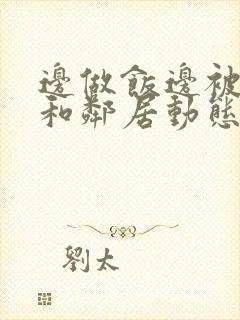 邊做飯邊被
和鄰居動態
劉太